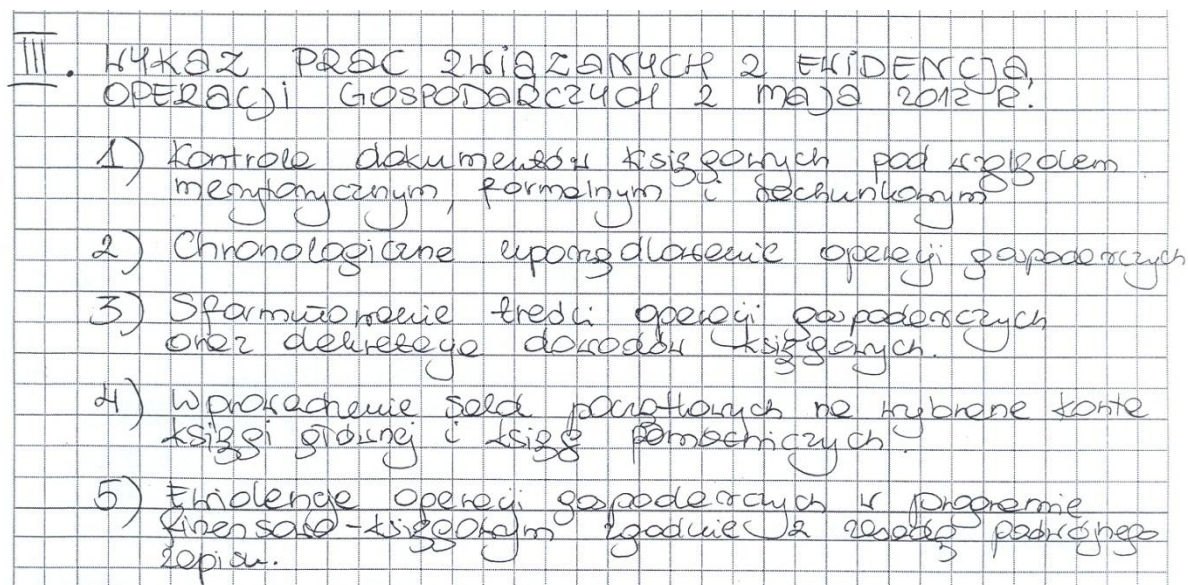 III. WYKAZ PRAC ZWIĄZANYCH Z EWIDENCJĄ
OPERACJI GOSPODARCZYCH Z MAJA 2012 R.
1) Kontrola dokumentów księgowych pod względem
merytorycznym, formalnym i rachunkowym
2) Chronologiczne uporządkowanie operacji gospodarczych
3) Sformułowanie treści operacji gospodarczych
oraz dekretacja dowodów księgowych.
4) Wprowadzenie sald początkowych na wybrane konta
księgi głównej i ksiąg pomocniczych.
5) Ewidencja operacji gospodarczych w programie
finansowo-księgowym zgodnie z zasadą podwójnego
zapisu.